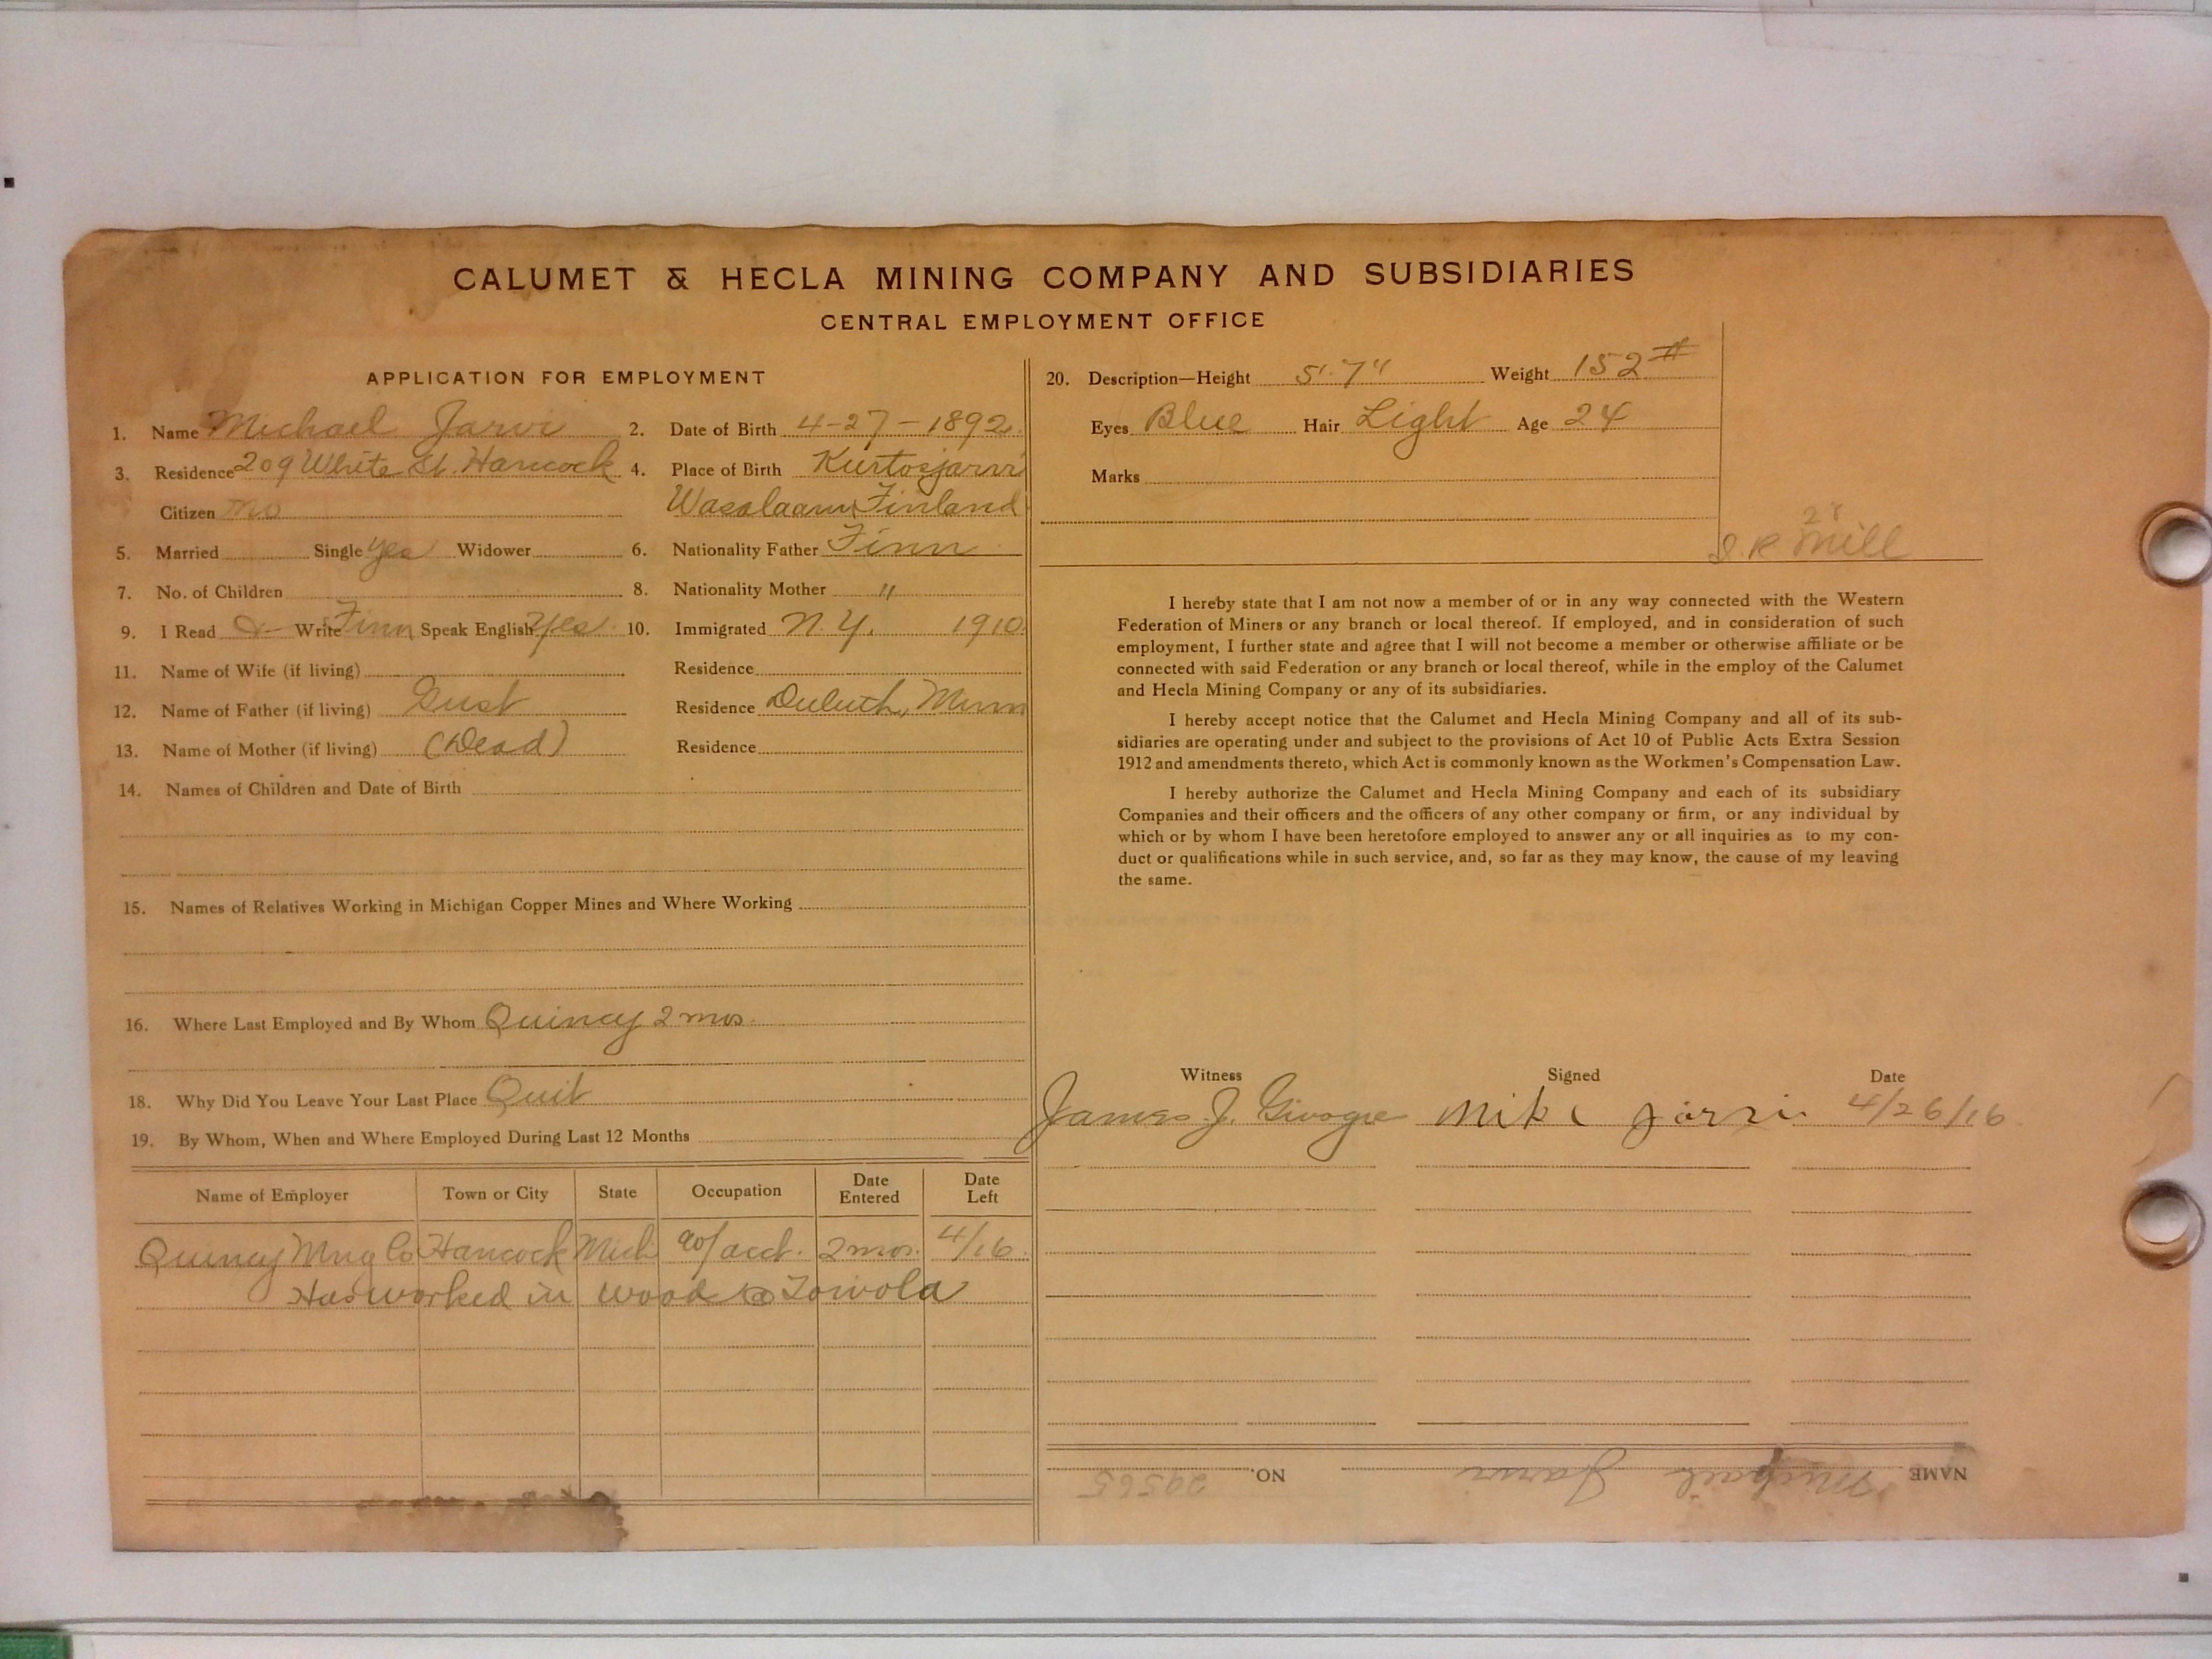 CALUMET & HECLA MINING COMPANY AND SUBSIDIARIES
CENTRAL EMPLOYMENT OFFICE
APPLICATION FOR EMPLOYMENT
1. Name Michael Jarvi 2. Date of Birth 4-27-1892
3. Residence 209 White St. Hancock 4. Place of Birth Kurtosjarvi
Citizen no Wasalaani Finland
5. Married Single yes Widower 6. Nationality Father Finn
7. No. of Children 8. Nationality Mother "
9. I Read & Write Finn Speak English Yes 10. Immigrated N.Y. 1910
11. Name of Wife (if living) Residence
12. Name of Father (if living) Gust Residence Duluth, Minn
13. Name of Mother (if living) (Dead) Residence
14. Names of Children and Date of Birth
15. Names of Relatives Working in Michigan Copper Mines and Where Working
16. Where Last Employed and By Whom Quincy 2 mos.
18. Why Did You Leave Your Last Place Quit
19. By Whom, When and Where Employed During Last 12 Months
Name of Employer Town or City State Occupation Date Entered Date Left
Quincy Mng Co Hancock Mich acct. 2 mos. 4/16
Has worked in wood @ Toivola
20. Description—Height 5' 7" Weight 152 #
Eyes Blue Hair Light Age 24
Marks
Mill
I hereby state that I am not now a member of or in any way connected with the Western
Federation of Miners or any branch or local thereof. If employed, and in consideration of such
employment, I further state and agree that I will not become a member or otherwise affiliate or be
connected with said Federation or any branch or local thereof, while in the employ of the Calumet
and Hecla Mining Company or any of its subsidiaries.
I hereby accept notice that the Calumet and Hecla Mining Company and all of its sub-
sidiaries are operating under and subject to the provisions of Act 10 of Public Acts Extra Session
1912 and amendments thereto, which Act is commonly known as the Workmen's Compensation Law.
I hereby authorize the Calumet and Hecla Mining Company and each of its subsidiary
Companies and their officers and the officers of any other company or firm, or any individual by
which or by whom I have been heretofore employed to answer any or all inquiries as to my con-
duct or qualifications while in such service, and, so far as they may know, the cause of my leaving
the same.
Witness Signed Date
James J. Mike Jarvi 4/26/16
NAME Michael Jarvi NO. 29565